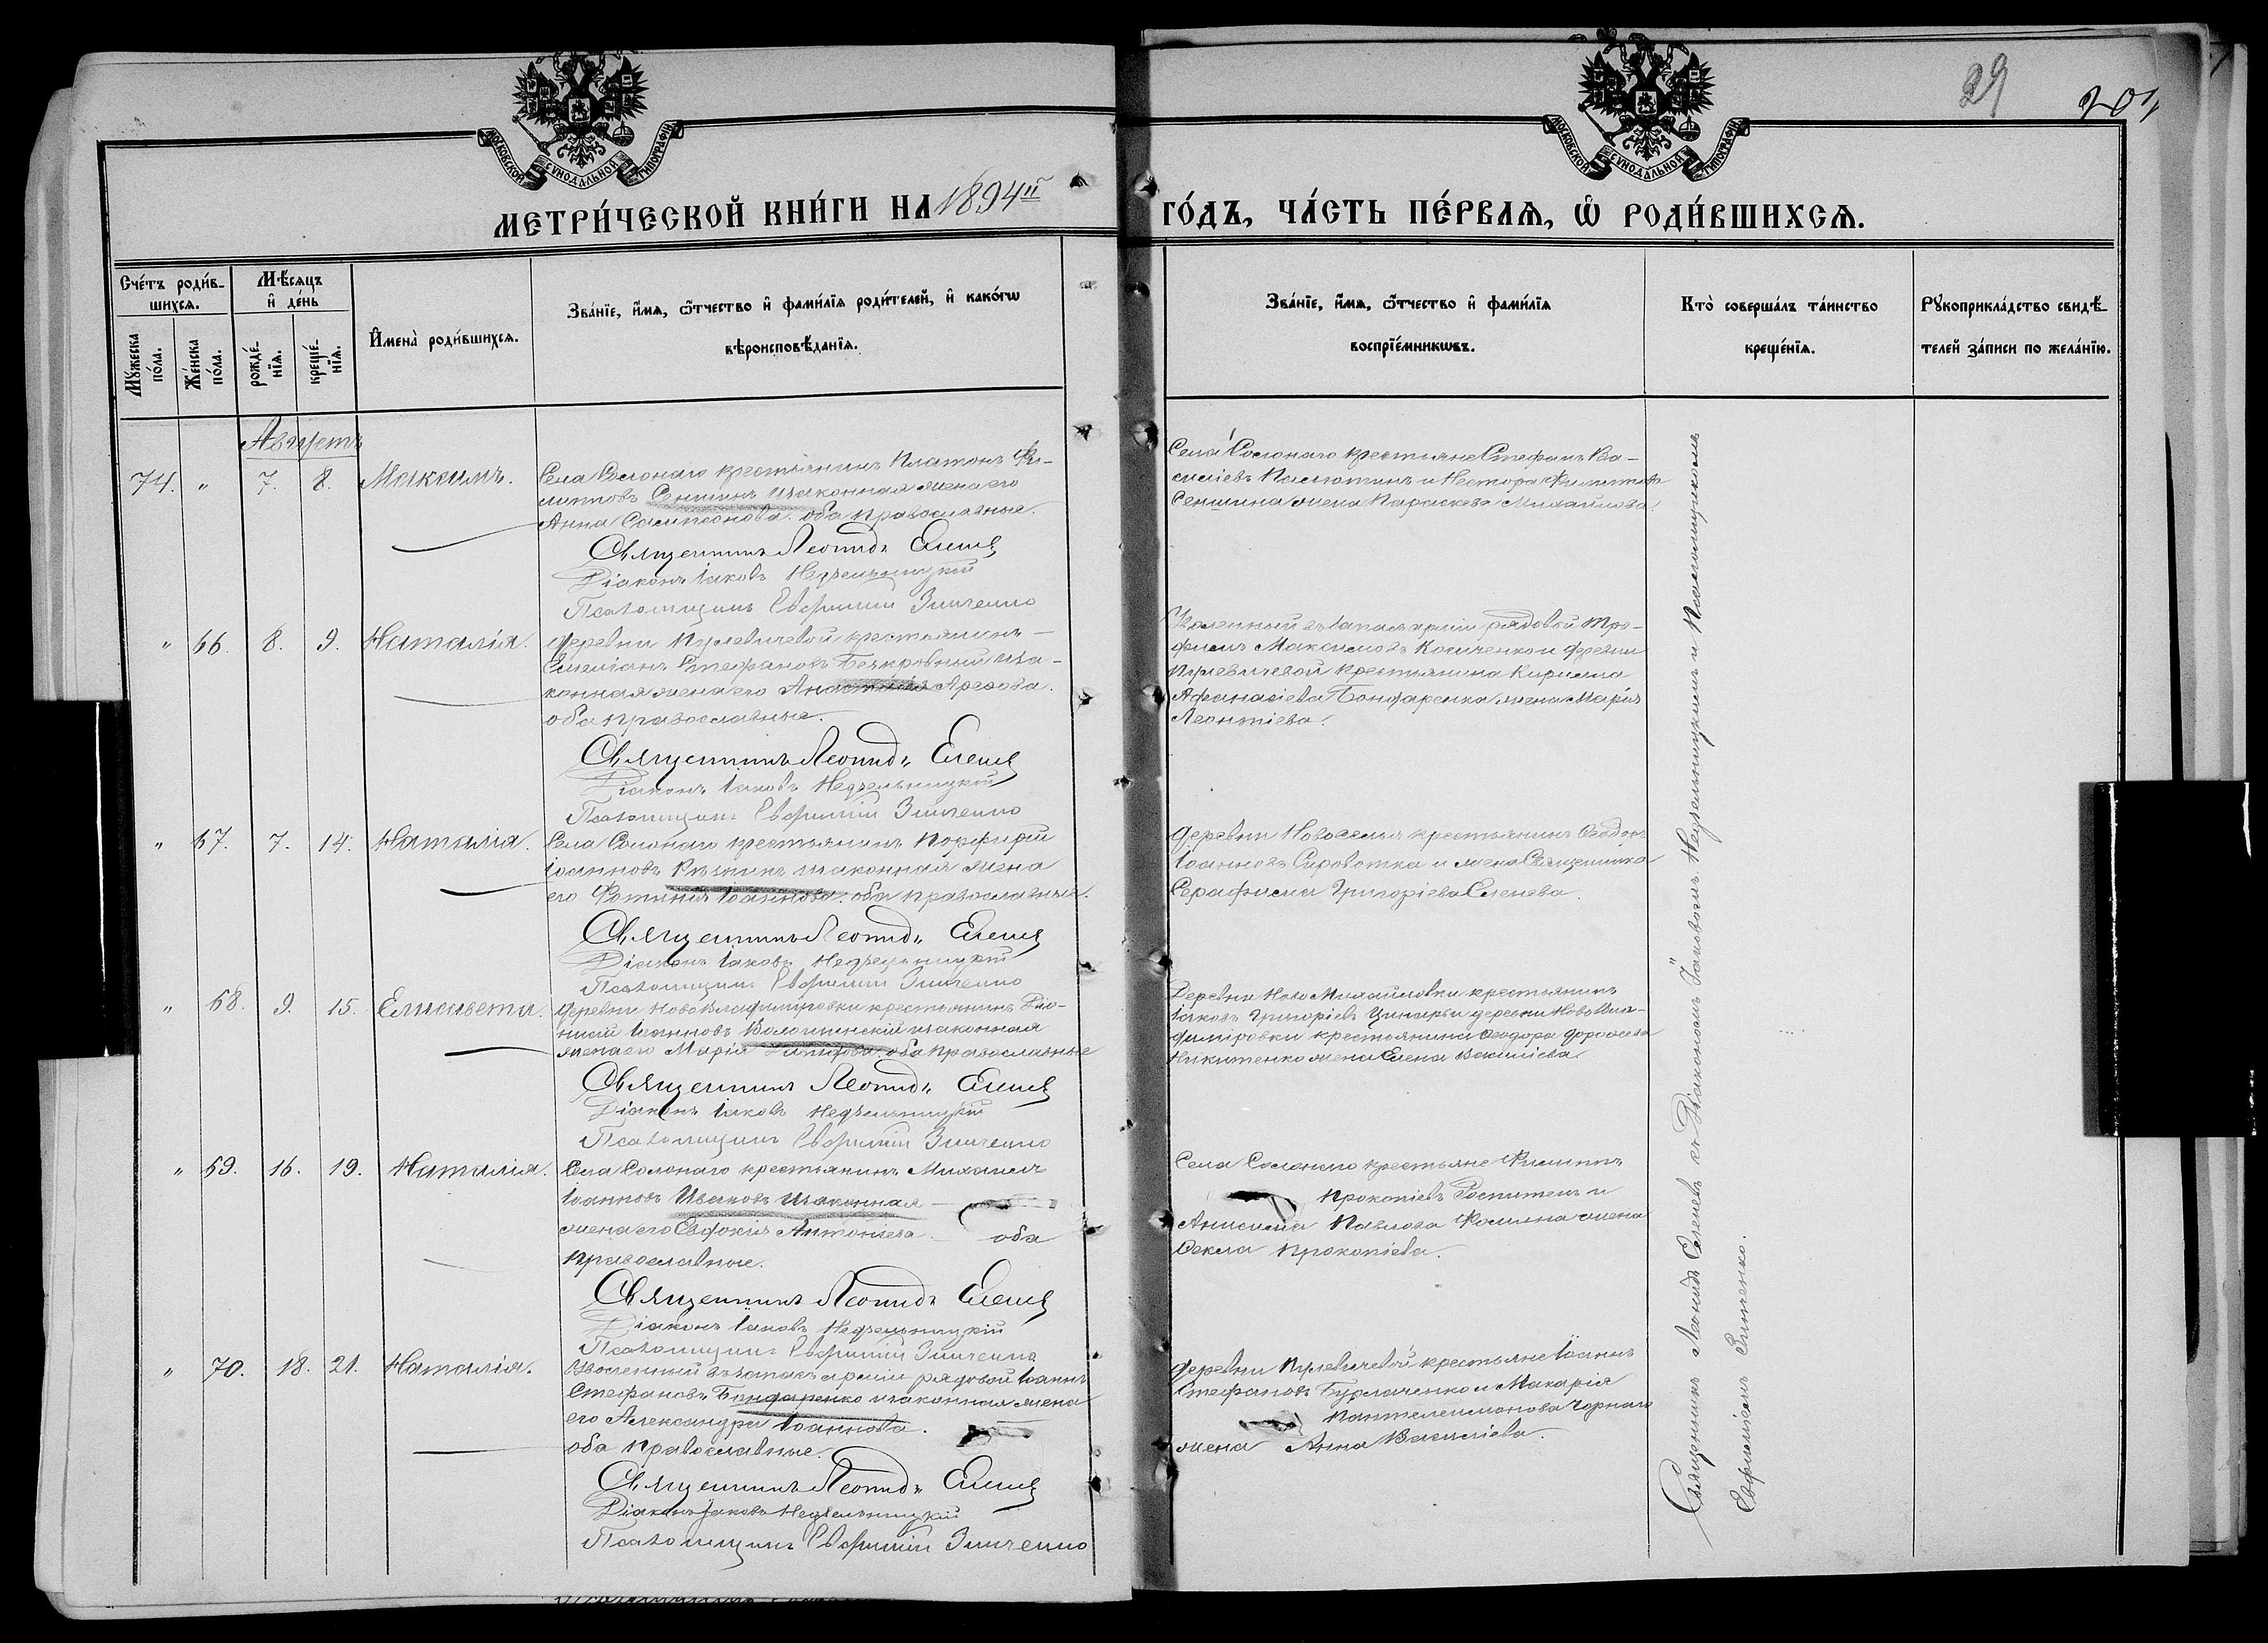 29
201
МОСКОВСКОЙ СУНОДАЛЬНОЙ ТИПОГРАФІИ
МОСКОВСКОЙ СУНОДАЛЬНОЙ ТИПОГРАФІИ
МЕТРИ́ЧЕСКОЙ КНИ́ГИ НА 1894й ГО́ДЪ, ЧА́СТЬ ПЕ́РВАѦ, Ѡ РОДИ́ВШИХСѦ.
Сче́тъ роди́в-
шихсѧ.
Мꙋ́жеска по́ла.
Же́нска по́ла.
Мѣ́сѧцъ
и де́нь
рожде́-
нїѧ.
креще́-
нїѧ.
И́мена̀ роди́вшихсѧ.
Зва́нїе, и́мѧ, ѻ́тчество и фами́лїѧ роди́телей, и како́гѡ
вѣроисповѣ́данїѧ.
Зва́нїе, и́мѧ, ѻ́тчество и фами́лїѧ
воспрїе́мникѡвъ.
Кто̀ соверша́лъ та́инство
креще́нїѧ.
Рꙋкоприкла́дство свидѣ́-
телей за́писи по жела́нїю.
Августъ
74. " 7. 8. Максимъ.
Села Солонаго крестьянинъ Платонъ Фи-
липповъ Сеншинъ и законная жена его
Анна Сампсонова. оба православные.
Священникъ Леонидъ Еленев
Діаконъ Іаковъ Недзельницкій
Псаломщикъ Евфимій Зинченко
Села Солонаго крестьяне Стефанъ Ва-
силіевъ Пасютинъ и Нестора Филиппова
Сеншина жена Параскева Михайлова.
" 66. 8. 9. Наталія.
Деревни Пулевичевой крестьянинъ
Емеліанъ Стефановъ Безкровный и за-
конная жена его Анастасія Арефова.
оба православные.
Священникъ Леонидъ Еленев
Діаконъ Іаковъ Недзельницкій
Псаломщикъ Евфимій Зинченко
Уволенный въ запасъ арміи рядовой Тро-
фимъ Максимовъ Косиченко и деревни
Пулевичевой крестьянина Кирилла
Афанасіева Бондаренка жена Марія
Леонтіева.
" 67. 7. 14. Наталія.
Села Солонаго крестьянинъ Порфирій
Іоанновъ Рѣзникъ и законная жена
его Фотинія Іоаннова. оба православные.
Священникъ Леонидъ Еленев
Діаконъ Іаковъ Недзельницкій
Псаломщикъ Евфимій Зинченко
Деревни Новоселья крестьянинъ Ѳеодоръ
Іоанновъ Сыроватка и жена Священника
Серафима Григоріева Еленева.
" 68. 9. 15. Елисавета.
деревни Нововладиміровки крестьянинъ Діо-
нисій Іоанновъ Волошинскій и законная
жена его Марія оба православные
Священникъ Леонидъ Еленев
Діаконъ Іаковъ Недзельницкій
Псаломщикъ Евфимій Зинченко
Деревни Ново Михайловки крестьянинъ
Іаковъ Григоріевъ и деревни Нововла-
диміровки крестьянина Ѳеодора Дороѳеева
Никитенко жена Елена Василіева.
" 69. 16. 19. Наталія.
Села Солонаго крестьянинъ Михаилъ
Іоанновъ Ивановъ и законная
жена его Евдокія Антоніева оба
православные.
Священникъ Леонидъ Еленев
Діаконъ Іаковъ Недзельницкій
Псаломщикъ Евфимій Зинченко
Села Солонаго крестьяне Филиппъ
Прокопіевъ и
Анисима Павлова Фомина жена
Ѳекла Прокопіева.
" 70. 18. 21. Наталія.
Уволенный въ запасъ арміи рядовой Іоаннъ
Стефановъ Бондаренко и законная жена
его Александра Іоаннова.
оба православные.
Священникъ Леонидъ Еленев
Діаконъ Іаковъ Недзельницкій
Псаломщикъ Евфимій Зинченко
Деревни Пулевичевой крестьяне Іоаннъ
Стефановъ Бурлаченко и Макарія
Пантелеимонова Чорнаго
жена Анна Василіева.
Священникъ Леонидъ Еленевъ съ Діакономъ Іаковомъ Недзельницкимъ и Псаломщикомъ
Евфиміемъ Зинченко.